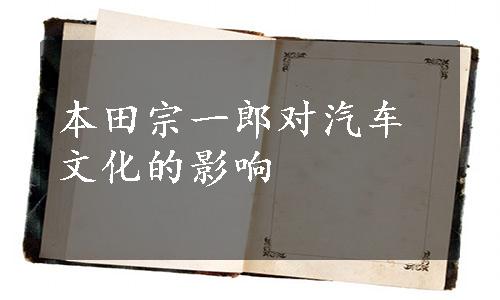 本田宗一郎对汽车
文化的影响